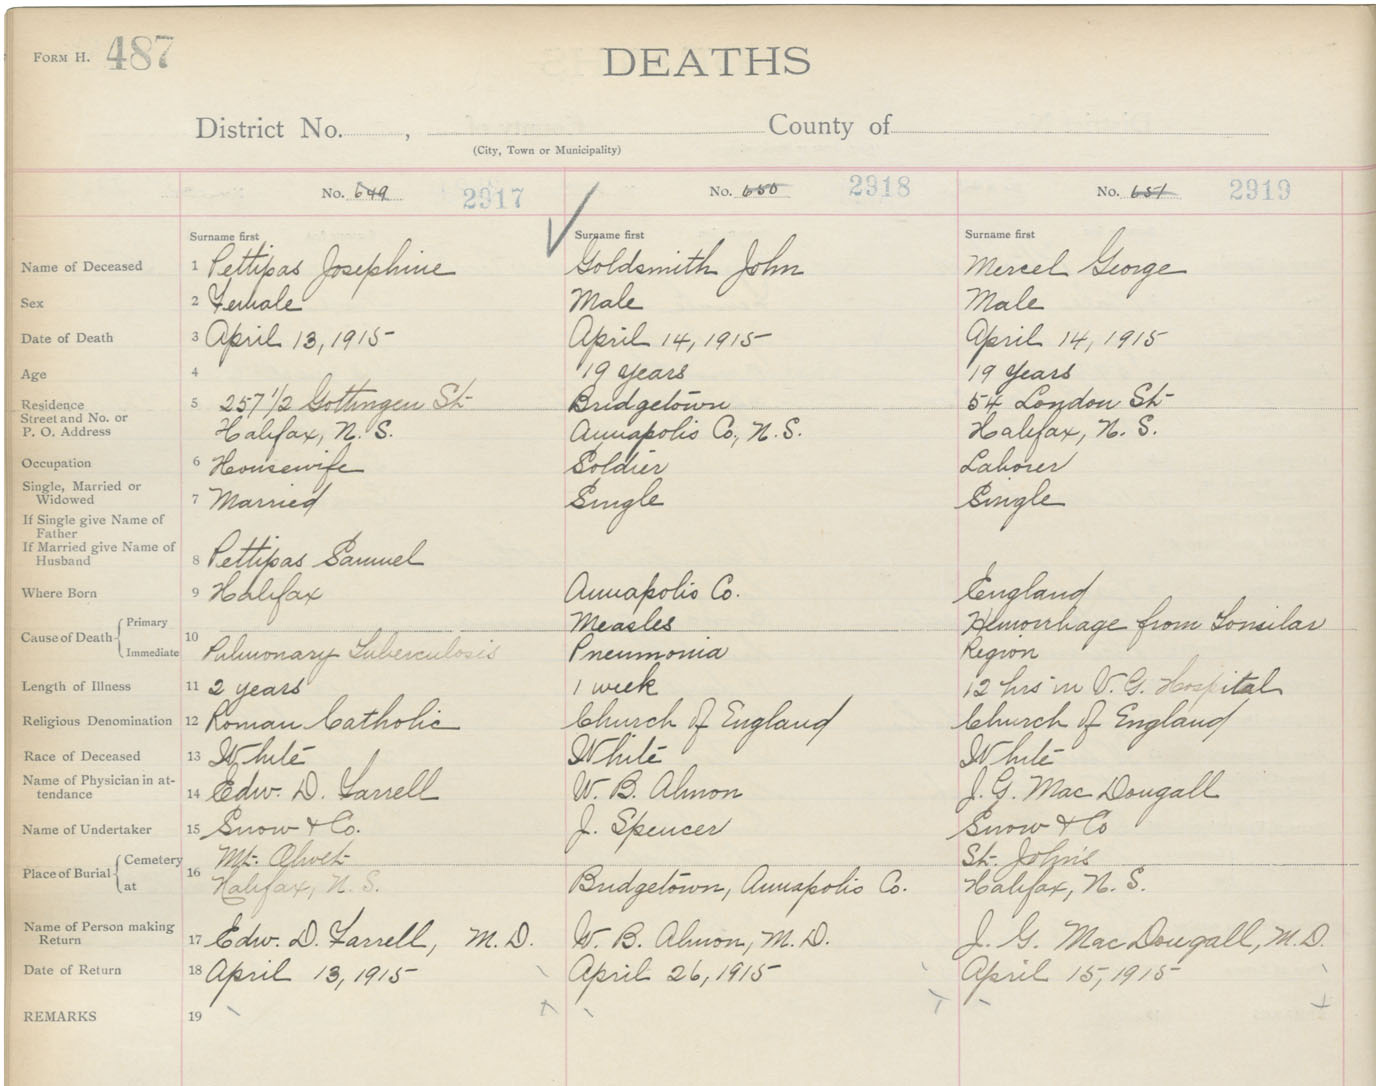 FORM H. 487
DEATHS
District No. , County of
(City, Town or Municipality)
No. 649 2917 No. 650 2918 No. 651 2919
Surname first Surname first Surname first
Name of Deceased 1 Pettipas Josephine Goldsmith John Mercel George
Sex 2 Female Male Male
Date of Death 3 April 13, 1915 April 14, 1915 April 14, 1915
Age 4 19 years 19 years
Residence 5 257 1/2 Gottingen St. Bridgetown 54 London St.
Street and No. or
P. O. Address Halifax, N. S. Annapolis Co., N. S. Halifax, N. S.
Occupation 6 Housewife Soldier Laborer
Single, Married or
Widowed 7 Married Single Single
If Single give Name of
Father
If Married give Name of
Husband 8 Pettipas Samuel
Where Born 9 Halifax Annapolis Co. England
Cause of Death Primary 10 Measles Hemorrhage from Tonsilar
Immediate Pulmonary Tuberculosis Pneumonia Region
Length of Illness 11 2 years 1 week 12 hrs in V. G. Hospital
Religious Denomination 12 Roman Catholic Church of England Church of England
Race of Deceased 13 White White White
Name of Physician in at-
tendance 14 Edw. D. Farrell W. B. Almon J. G. MacDougall
Name of Undertaker 15 Snow & Co. J. Spencer Snow & Co
Place of Burial Cemetery 16 Mt. Olivet St. John's
at Halifax, N. S. Bridgetown, Annapolis Co. Halifax, N. S.
Name of Person making
Return 17 Edw. D. Farrell, M. D. W. B. Almon, M. D. J. G. MacDougall, M. D.
Date of Return 18 April 13, 1915 April 26, 1915 April 15, 1915
REMARKS 19